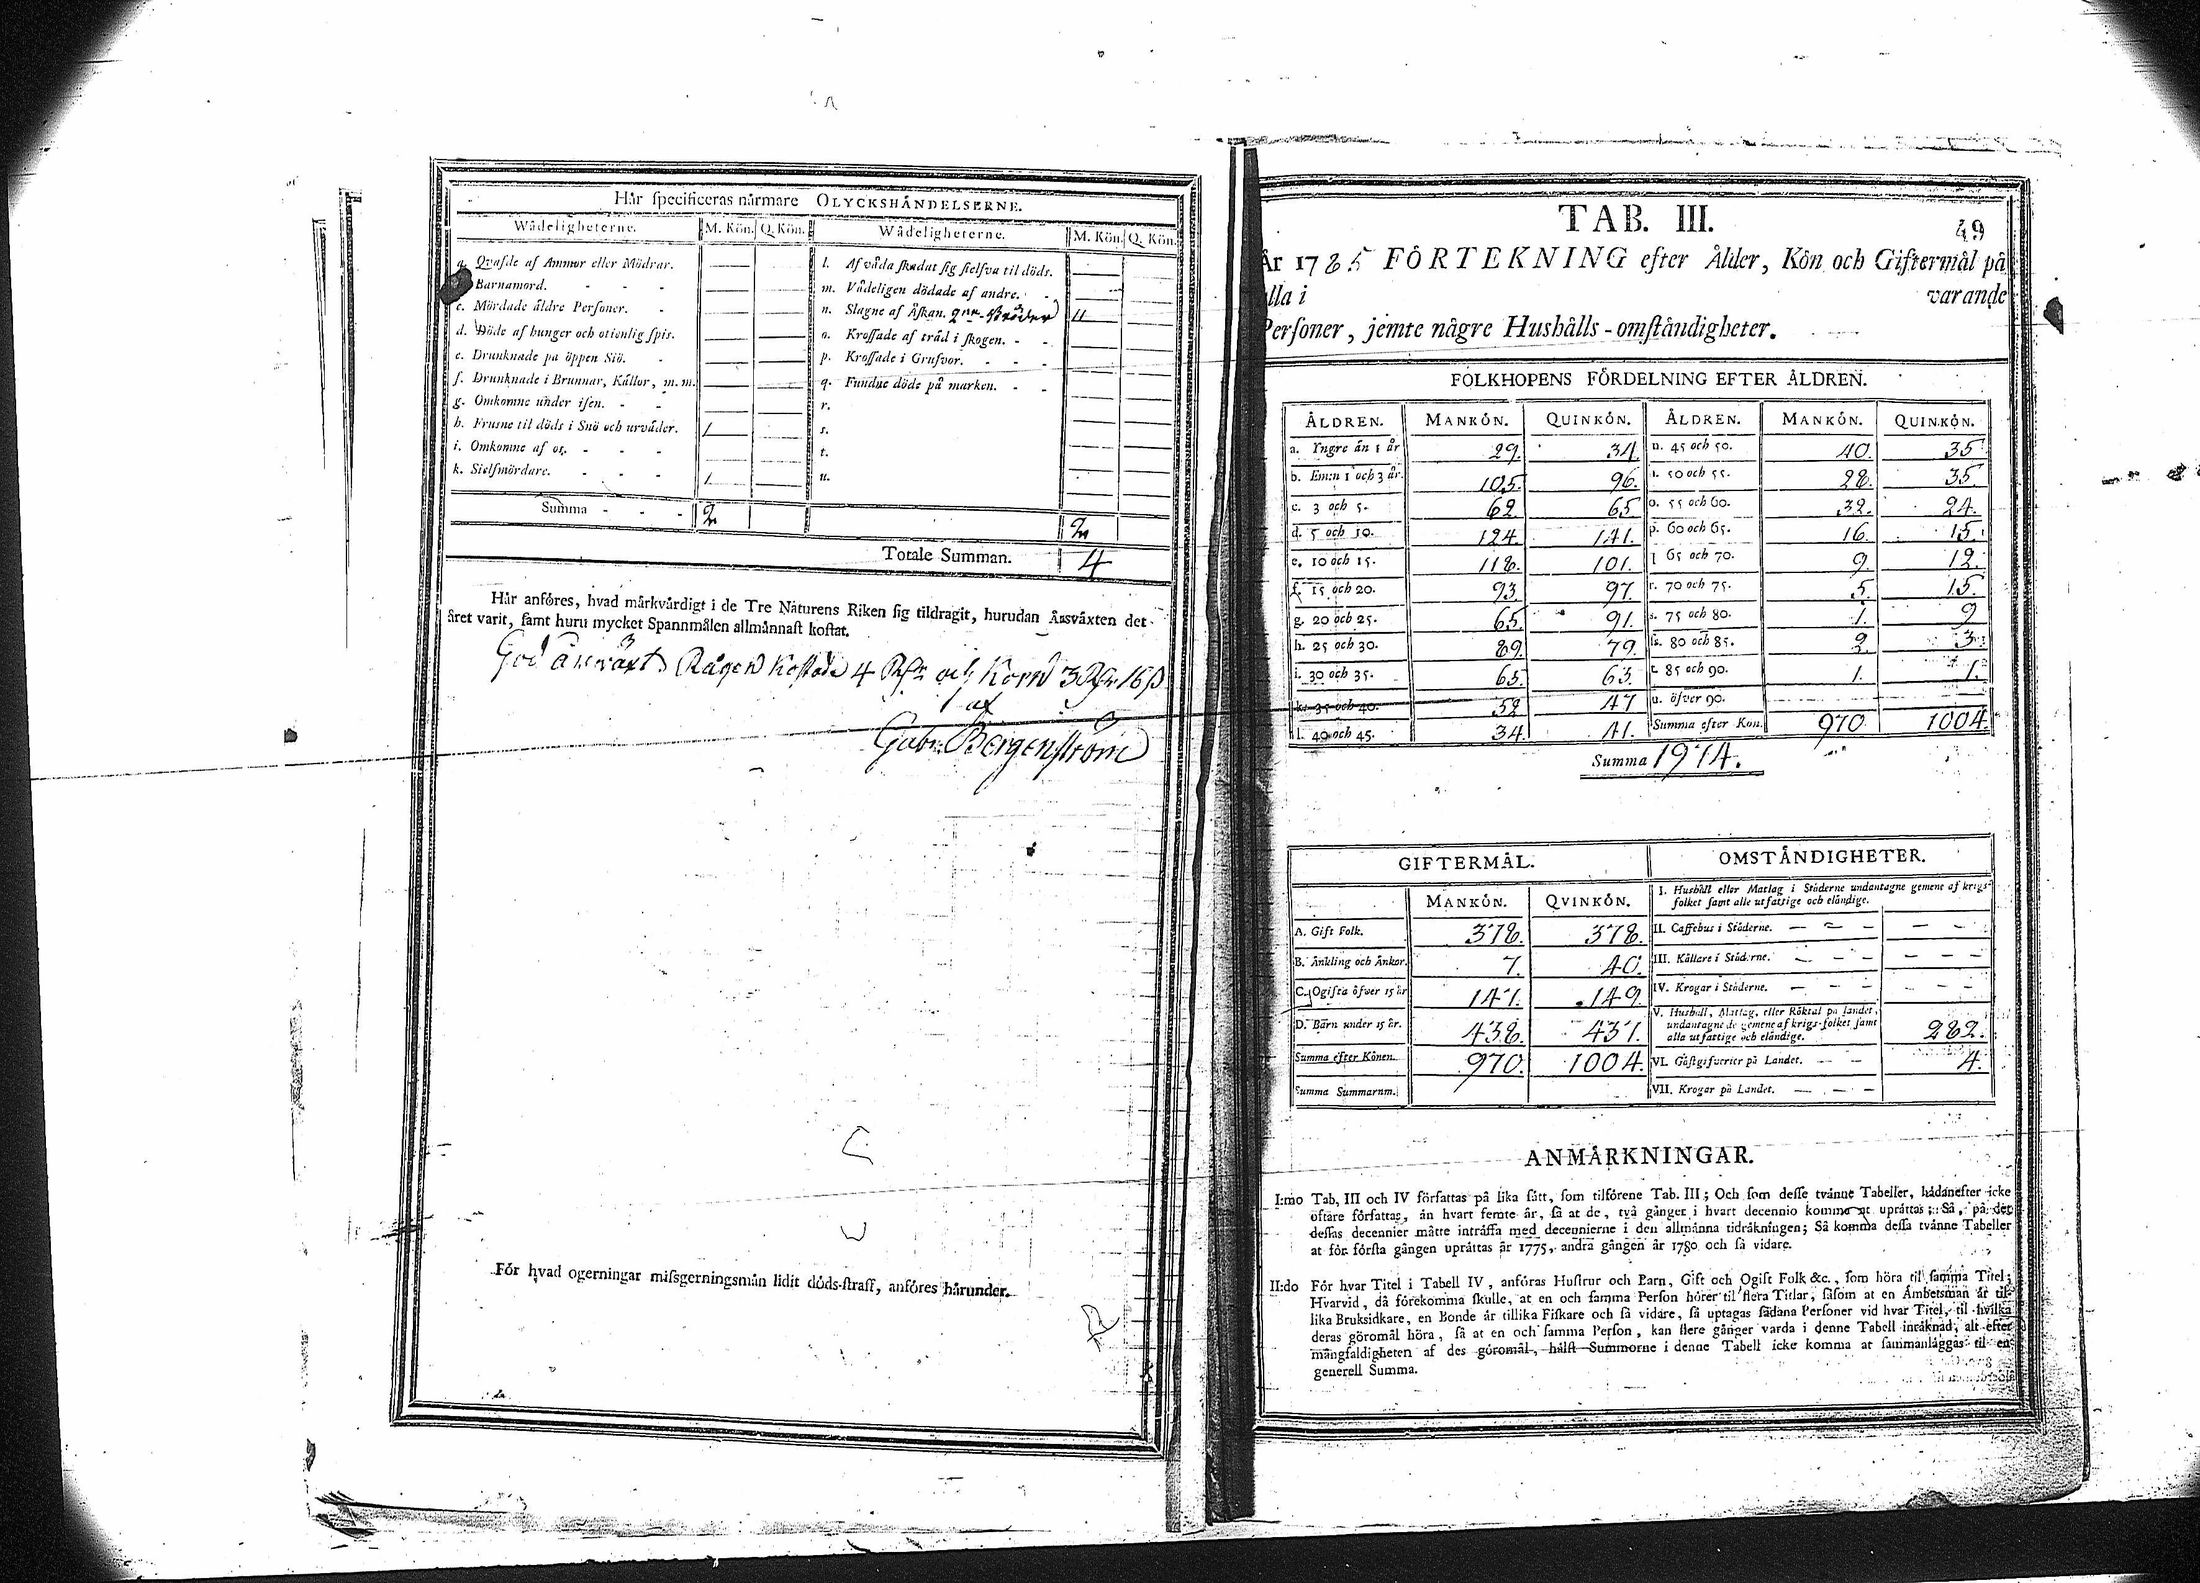 Hår specificeras nårmare OLYCKSHÅNDELSERNE.
Wådeligheterne. M. Kön. Q. Kön. Wådeligheterne. M. Kön. Q. Kön.
a. Qvafde af Ammor eller Mödrar.
Barnamord.
c. Mördade åldre Personer.
d. Döde af hunger och otienlig spis.
e. Drunknade på öppen Siö.
f. Drunknade i Brunnar, Kållor, m. m.
g. Omkomne under isen.
h. Frusne til döds i Snö och urväder. 1
i. Omkomne af os.
k. Sielfmördare. 1
Summa 2
l. Af våda skadat sig sielfva til döds.
m. Vådeligen dödade af andre.
n. Slagne af Åskan. 2ne Bröder 11
o. Krossade af tråd i skogen.
p. Krossade i Grufvor.
q. Fundne döde på marken.
r.
s.
t.
u.
2
Totale Summan. 4
Hår anföres, hvad mårkvårdigt i de Tre Naturens Riken sig tildragit, hurudan Årsvåxten det
året varit, samt huru mycket Spannmålen allmånnast kostat.
God årswäxt. Rågen kostade 4 Rdr och Korn 3 Rdr 16 ß
af
Gabr. Bergenström
För hvad ogerningar missgerningsmån lidit döds-straff, anföres hårunder.
TAB. III.
49
År 1785 FÖRTEKNING efter Ålder, Kön och Giftermål på
alla i varande
Personer, jemte någre Hushålls-omståndigheter.
FOLKHOPENS FÖRDELNING EFTER ÅLDREN.
ÅLDREN. MANKÖN. QUINKÖN. ÅLDREN. MANKÖN. QUINKÖN.
a. Yngre än 1 år 29. 34. n. 45 och 50. 40. 35.
b. Em:n 1 och 3 år. 105. 96. 50 och 55. 28. 35.
c. 3 och 5. 62. 65 o. 55 och 60. 32. 24.
d. 5 och 10. 124. 141. p. 60 och 65. 16. 15.
e. 10 och 15. 118. 101. 65 och 70. 9. 12.
f. 15 och 20. 93. 97. r. 70 och 75. 5. 15.
g. 20 och 25. 65. 91. s. 75 och 80. 1. 9
h. 25 och 30. 89. 79. 80 och 85. 2. 3.
i. 30 och 35. 65. 63. t. 85 och 90. 1. 1.
k. 35 och 40. 52. 47 u. öfver 90.
l. 40 och 45. 34. 41. Summa efter Kön. 970 1004.
Summa 1974.
GIFTERMÅL. OMSTÅNDIGHETER.
MANKÖN. QVINKÖN.
A. Gift Folk. 378. 378.
B. Änkling och Änkor. 7. 40.
C. Ogifta öfver 15 år 147. 149.
D. Barn under 15 år. 438. 437.
Summa efter Könen. 970. 1004.
Summa Summarum.
I. Hushåll eller Matlag i Ståderne undantagne gemene af krigs-
folket samt alle utfattige och elåndige.
II. Caffehus i Ståderne.
III. Kållare i Ståderne.
IV. Krogar i Ståderne.
V. Hushåll, Matlag, eller Röktal på landet,
undantagne de gemene af krigs-folket samt
alla utfattige och elåndige. 282.
VI. Gåstgifverier på Landet. 4.
VII. Krogar på Landet.
ANMÅRKNINGAR.
I:mo Tab, III och IV författas på lika sått, som tilförene Tab. III; Och som desse tvånne Tabeller, hådanefter icke
oftare författas, ån hvart femte år, så at de, två gånger i hvart decennio komma at upråttas; Så, på det
dessas decennier måtte intråffa med decennierne i den allmånna tidråkningen; Så komma dessa tvånne Tabeller
at för första gången upråttas år 1775, andra gången år 1780 och så vidare.
II:do För hvar Titel i Tabell IV, anföras Hustrur och Barn, Gift och Ogift Folk &c., som höra til samma Titel;
Hvarvid, då förekomma skulle, at en och samma Person hörer til flera Titlar, såsom at en Åmbetsman år til-
lika Bruksidkare, en Bonde år tillika Fiskare och så vidare, så uptagas sådana Personer vid hvar Titel, til hvilka
deras göromål höra, så at en och samma Person, kan flere gånger varda i denne Tabell inråknad, alt efter
mångfaldigheten af des göromål, hålst Summorne i denne Tabell icke komma at sammanlåggas til en
generell Summa.